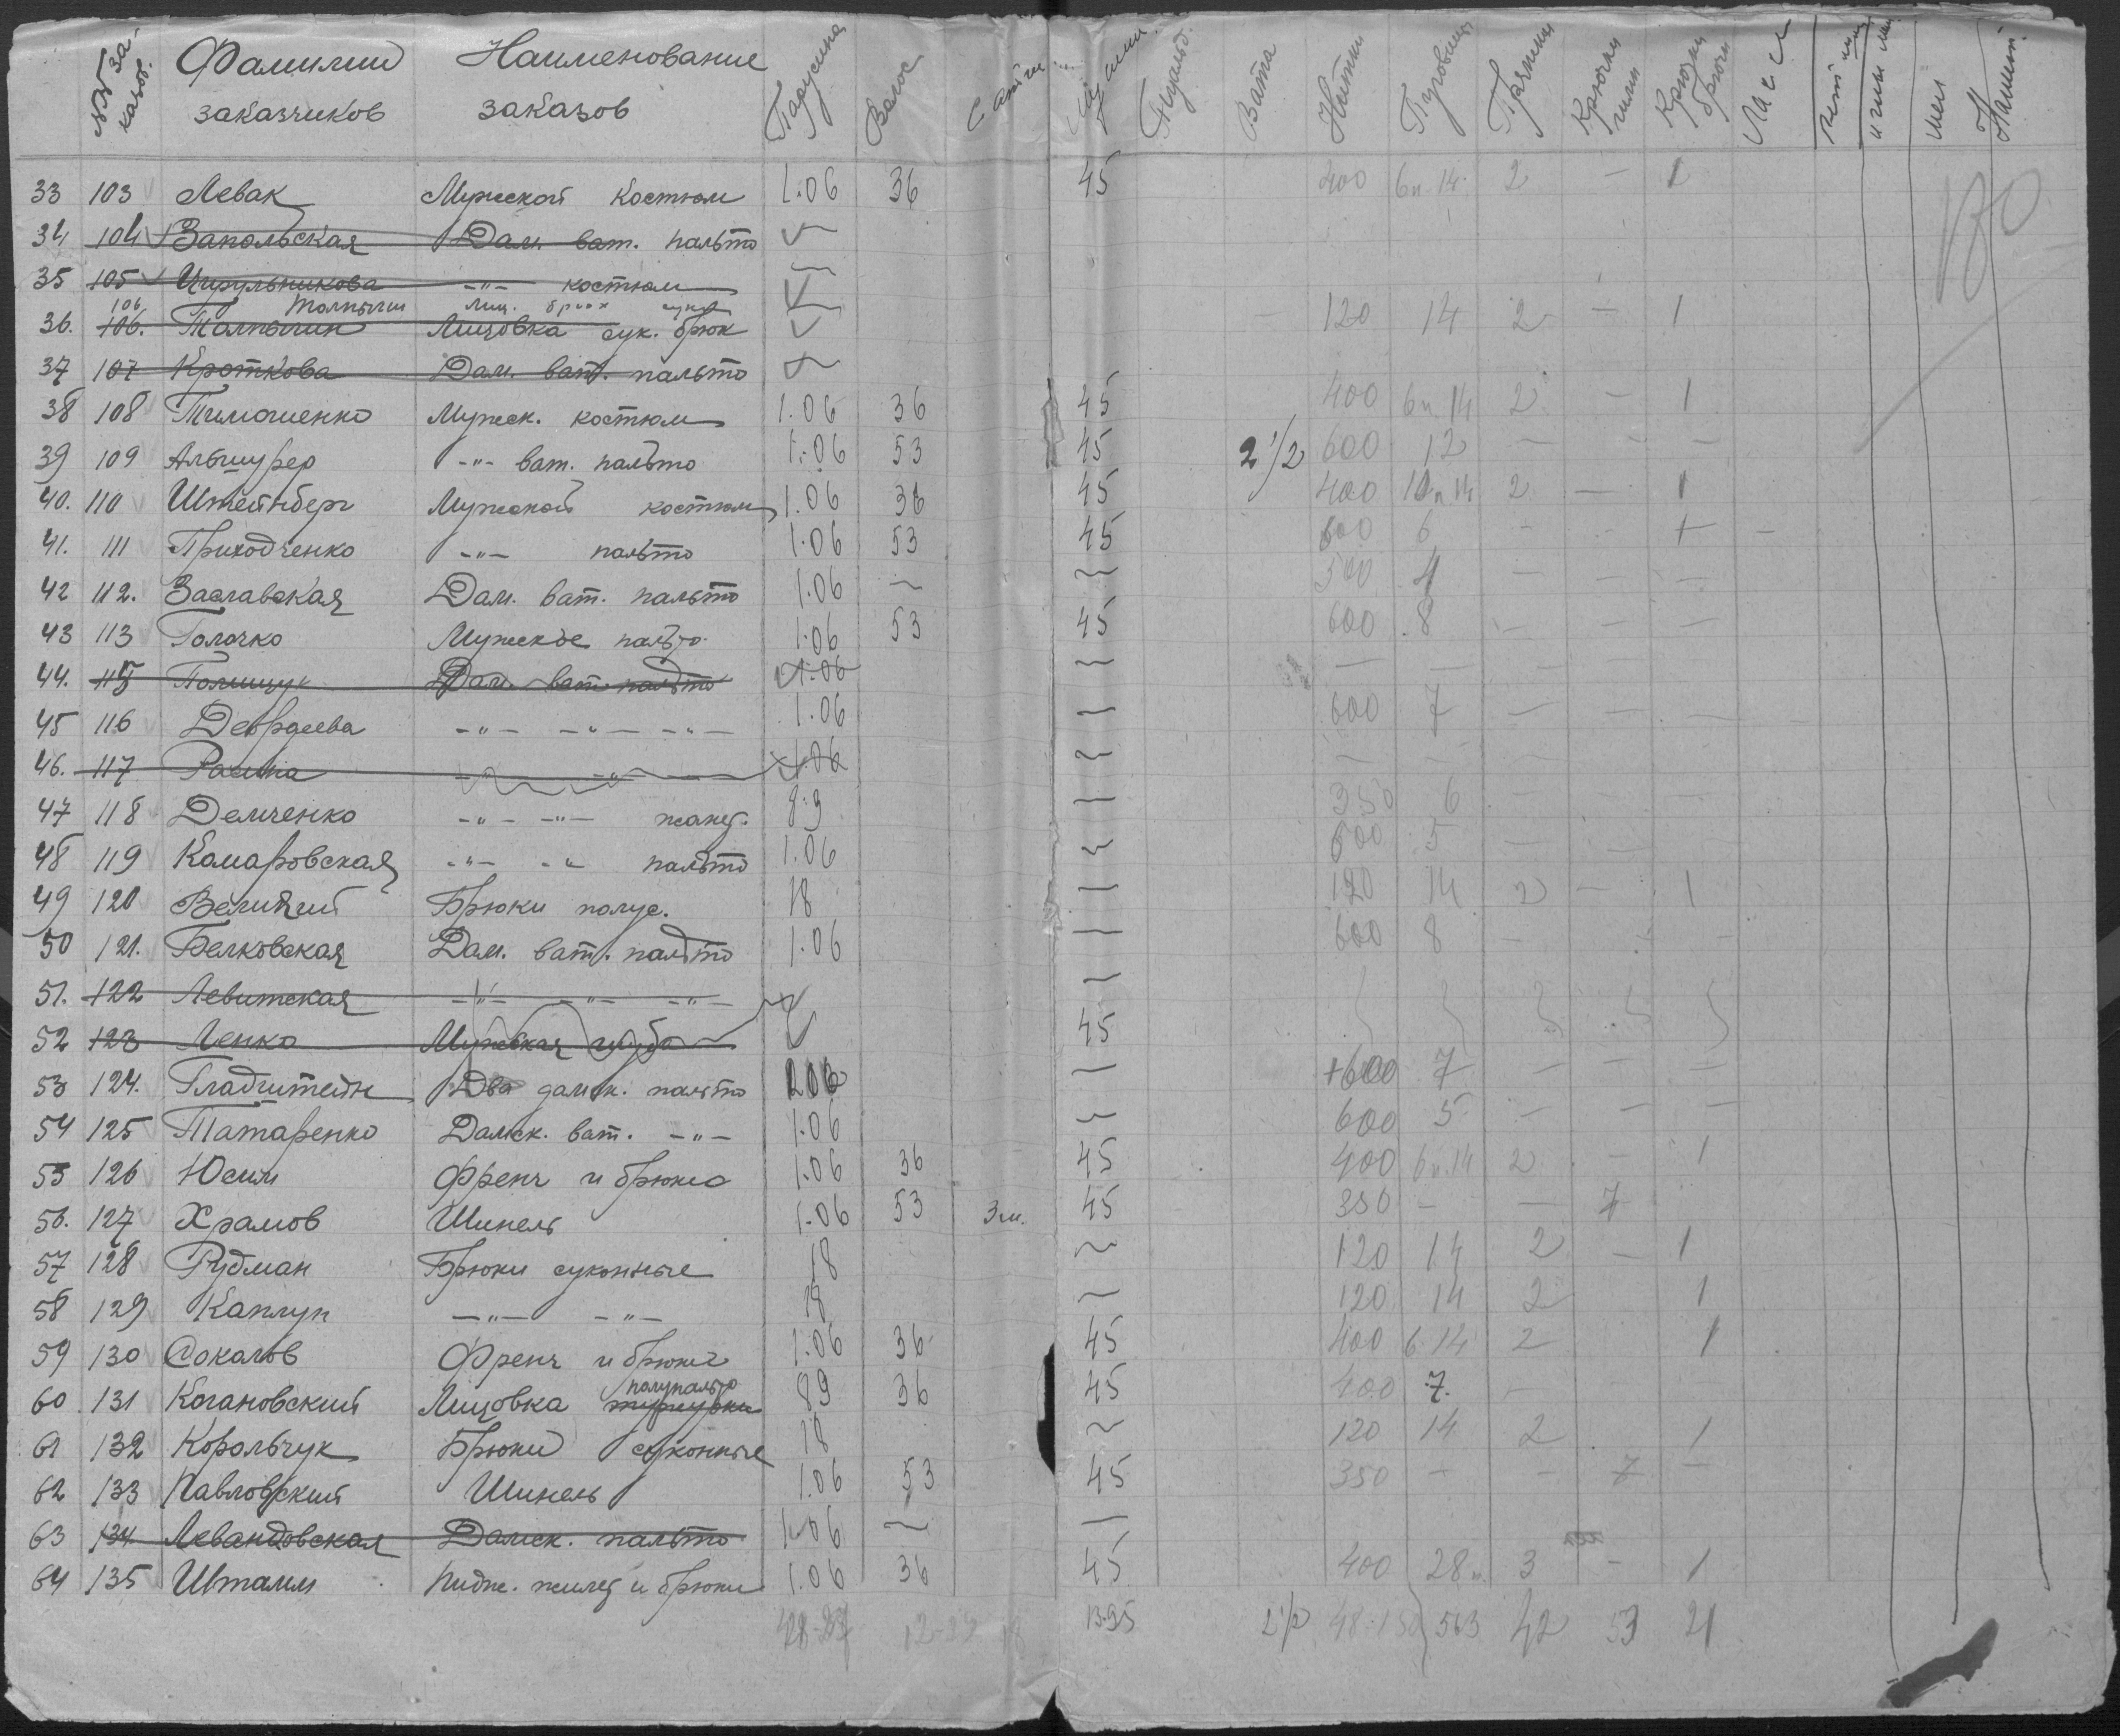 №№ заказов. Фамилии заказчиков Наименование заказов Парусина Волос Вата Нитки Пуговицы Пряжки Крючки шин Крючки брюки
33 103 Левак Мужской костюм 1.06 36 45 400 6 и 14 2 – 1
34 104 Запольская Дам. ват. пальто
35 105 Цирульникова -"- костюм
106 Толпыгин лиц. брюк сук.
36. 106. Толпыгин Лицовка сук. брюк 120 14 2 – 1
37 107 Кроткова Дам. ват. пальто
38 108 Тимошенко Мужск. костюм 1.06 36 45 400 6 и 14 2 – 1
39 109 Альшурер -"- ват. пальто 1.06 53 45 2 1/2 600 12 – – –
40. 110 Штейнберг Мужской костюм 1.06 36 45 400 10 и 14 2 – 1
41. 111 Приходченко -"- пальто 1.06 53 45 600 6 –
42 112. Заславская Дам. ват. пальто 1.06 – – 500 4 – – –
43 113 Голочко Мужское пальто. 1.06 53 45 600 8 – – –
44. 115 Полищук Дам. ват. пальто 1.06 – – – –
45 116 -"- -"- -"- 1.06 – 600 7 – – –
46. 117 1.06 – – –
47 118 Демченко -"- -"- жакет. 89 – 350 6 – – –
48 119 Комаровская -"- -"- пальто 1.06 – 600 5 – – –
49 120 Брюки полус. 18 – 120 14 2 – 1
50 121. Белковская Дам. ват. пальто 1.06 – 600 8 – – –
51. 122 Левитская -"- -"- -"- –
52 123 Ленко Мужская шуба 45
53 124. Гладштейн Два дамск. пальто – 600 7 – – –
54 125 Татаренко Дамск. ват. -"- 1.06 – 600 5 – – –
55 126 Юсим Френч и брюки 1.06 36 45 400 6 и 14 2 – 1
56. 127 Храмов Шинель 1.06 53 3 м. 45 350 – – 7
57 128 Рудман Брюки суконные 18 – 120 14 2 – 1
58 129 Каплун -"- -"- 18 – 120 14 2 1
59 130 Соколов Френч и брюки 1.06 36 45 400 6 14 2 1
полупальто
60 131 Когановский Лицовка тужурки 89 36 45 400 7. –
61 132 Корольчук Брюки суконные 18 – 120 14 2 1
62 133 Павловский Шинель 1.06 53 45 350 – – 7 –
63 134 Левандовская Дамск. пальто 1.06 – –
64 135 Штамм Пидж. жилет и брюки 1.06 36 45 400 28 3 – 1
13.95 2 1/2 563 42 53 21